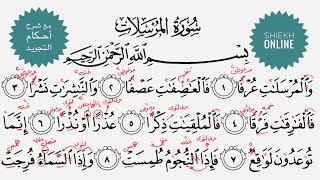 مع شرح
أحكام
التجويد
سُورَةُ الْمُرْسَلَاتِ
SHIEKH
ONLINE
بِسْمِ اللَّهِ الرَّحْمَٰنِ الرَّحِيمِ
وَالْمُرْسَلَٰتِ عُرْفًا ١ فَالْعَٰصِفَٰتِ عَصْفًا ٢ وَالنَّٰشِرَٰتِ نَشْرًا ٣
فَالْفَٰرِقَٰتِ فَرْقًا ٤ فَالْمُلْقِيَٰتِ ذِكْرًا ٥ عُذْرًا أَوْ نُذْرًا ٦ إِنَّمَا
تُوعَدُونَ لَوَٰقِعٌ ٧ فَإِذَا النُّجُومُ طُمِسَتْ ٨ وَإِذَا السَّمَآءُ فُرِجَتْ